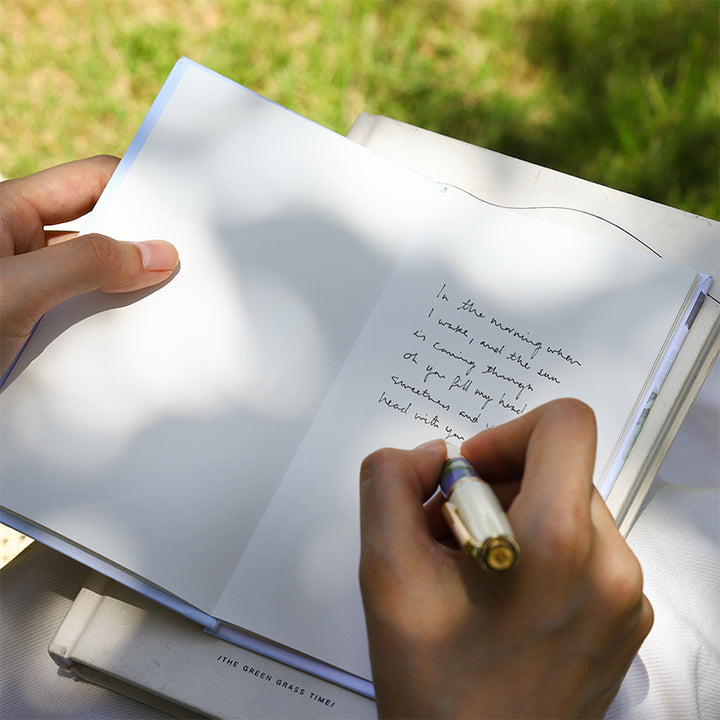 In the morning when
I wake, and the sun
is coming through
oh you fill my head
sweetness and
head with you
/THE GREEN GRASS TIME/